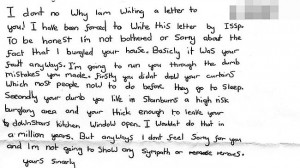 I dont no Why Iam Writing a letter to
you! I have been forced to Write this letter by ISSP.
To be honest Im not bothered or Sorry about the
fact that I burgled your house. Basicly it was your
fault anyways. I'm going to run you through the dumb
mistakes you made. firstly you didnt draw your curtains
Which most people now to do before they go to sleep.
Secondly your dumb you live in Stanburn a high risk
burglary area and your thick enough to leave your
downstairs kitchen window open. I wouldnt do that in
a million years. But anyways I dont feel Sorry for you
and Im not going to show any Sympath or remores.
yours Sinarly